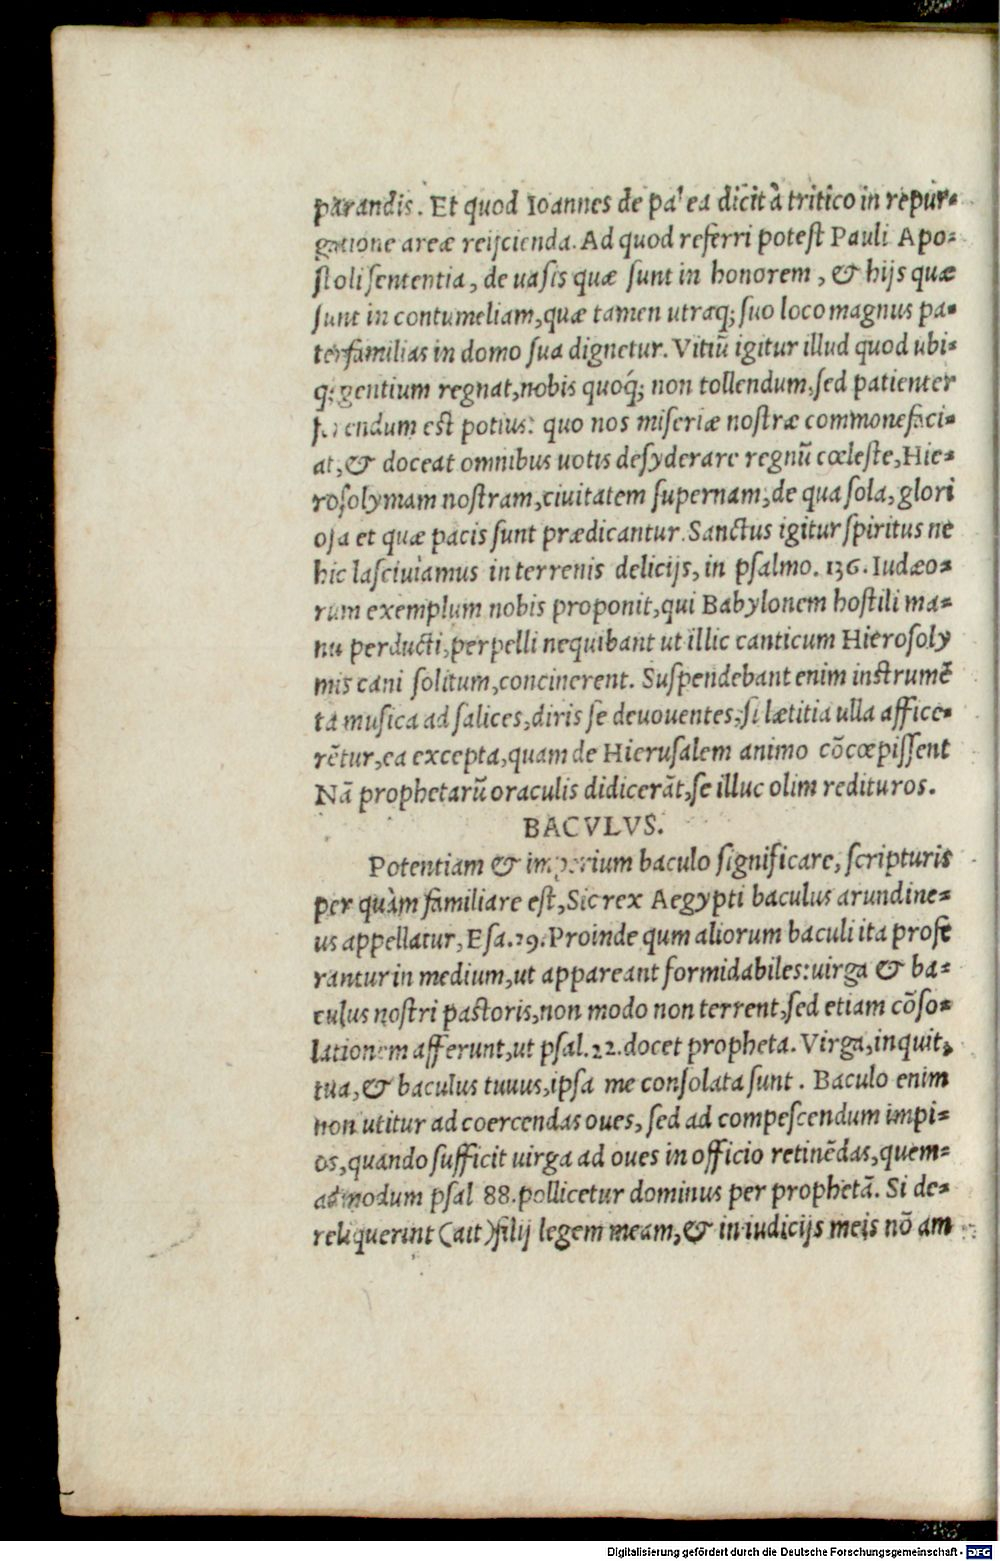 parandis. Et quod Ioannes de palea dicit à tritico in repur=
gatione areæ reijcienda. Ad quod referri potest Pauli Apo=
stoli sententia, de uasis quæ sunt in honorem, & hijs quæ
sunt in contumeliam, quæ tamen utraq; suo loco magnus pa=
terfamilias in domo sua dignetur. Vitiū igitur illud quod ubi=
q; gentium regnat, nobis quoq́; non tollendum, sed patienter
ferendum est potius: quo nos miseriæ nostræ commonefaci=
at, & doceat omnibus uotis desyderare regnū cœleste, Hie=
rosolymam nostram, ciuitatem supernam, de qua sola, glori
osa et quæ pacis sunt prædicantur. Sanctus igitur spiritus ne
hic lasciuiamus in terrenis delicijs, in psalmo. 136. Iudæo=
rum exemplum nobis proponit, qui Babylonem hostili ma=
nu perducti, perpelli nequibant ut illic canticum Hierosoly
mis cani solitum, concinerent. Suspendebant enim instrumē
ta musica ad salices, diris se deuouentes, si lætitia ulla affice=
rētur, ea excepta, quam de Hierusalem animo cōcœpissent
Nā prophetarū oraculis didicerāt, se illuc olim redituros.
BACVLVS.
Potentiam & imperium baculo significare, scripturis
per quàm familiare est, Sic rex Aegypti baculus arundine=
us appellatur, Esa. 29. Proinde qum aliorum baculi ita profe
rantur in medium, ut appareant formidabiles: uirga & ba=
culus nostri pastoris, non modo non terrent, sed etiam cōso=
lationem afferunt, ut psal. 22. docet propheta. Virga, inquit,
tua, & baculus tuuus, ipsa me consolata sunt. Baculo enim
non utitur ad coercendas oues, sed ad compescendum impi=
os, quando sufficit uirga ad oues in officio retinēdas, quem=
admodum psal 88. pollicetur dominus per prophetā. Si de=
reliquerint (ait) filij legem meam, & in iudicijs meis nō am
Digitalisierung gefördert durch die Deutsche Forschungsgemeinschaft - DFG